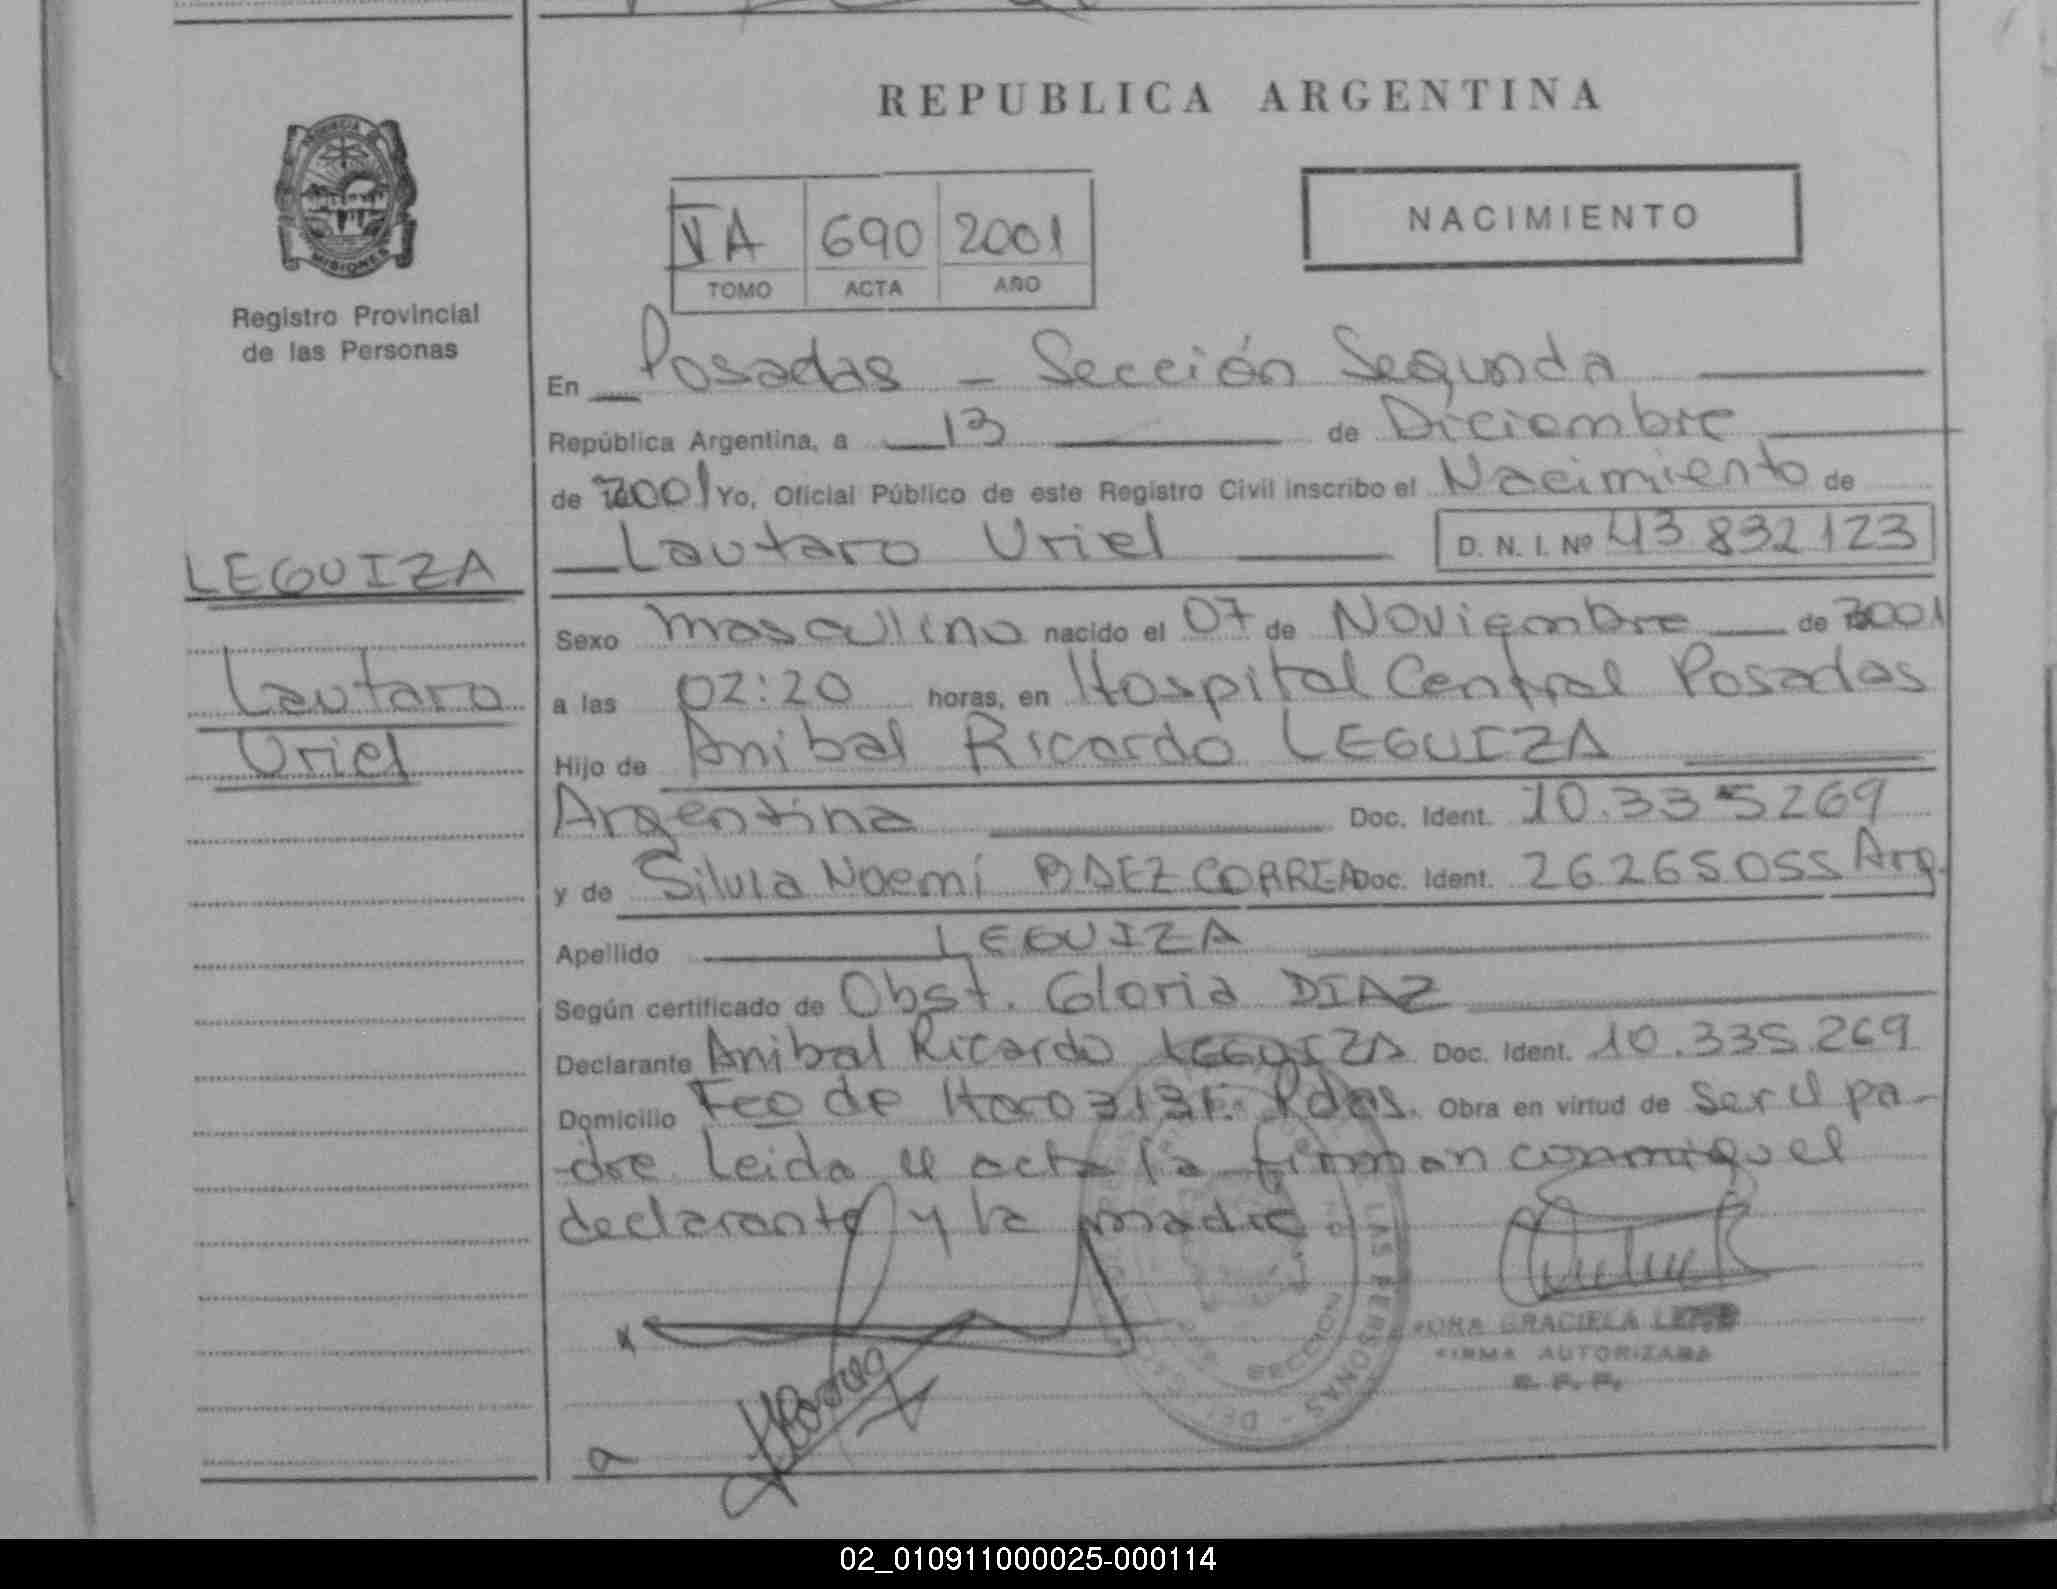 REPUBLICA ARGENTINA
PROVINCIA DE
MISIONES
Registro Provincial
de las Personas
VA 690 2001
TOMO ACTA AÑO
NACIMIENTO
En Posadas - Sección Segunda
República Argentina, a 13 de Diciembre
de 2001 Yo, Oficial Público de este Registro Civil inscribo el Nacimiento de
Lautaro Uriel D. N. I. Nº 43 832 123
LEGUIZA
Lautaro
Uriel
Sexo masculino nacido el 07 de Noviembre de 2001
a las 02:20 horas, en Hospital Central Posadas
Hijo de Anibal Ricardo LEGUIZA
Argentina Doc. Ident. 10.335269
y de Silvia Noemí BAEZ CORREA Doc. Ident. 26265055 Arg.
Apellido LEGUIZA
Según certificado de Obst. Gloria DIAZ
Declarante Anibal Ricardo LEGUIZA Doc. Ident. 10.335.269
Domicilio Fco de Haro 3131. Pdas. Obra en virtud de ser el pa-
-dre leida el acta la firman conmigo el
declarante y la madre.
LAS PERSONAS - DEL
SECCION
GRACIELA
FIRMA AUTORIZADA
R. P. P.
02_010911000025-000114